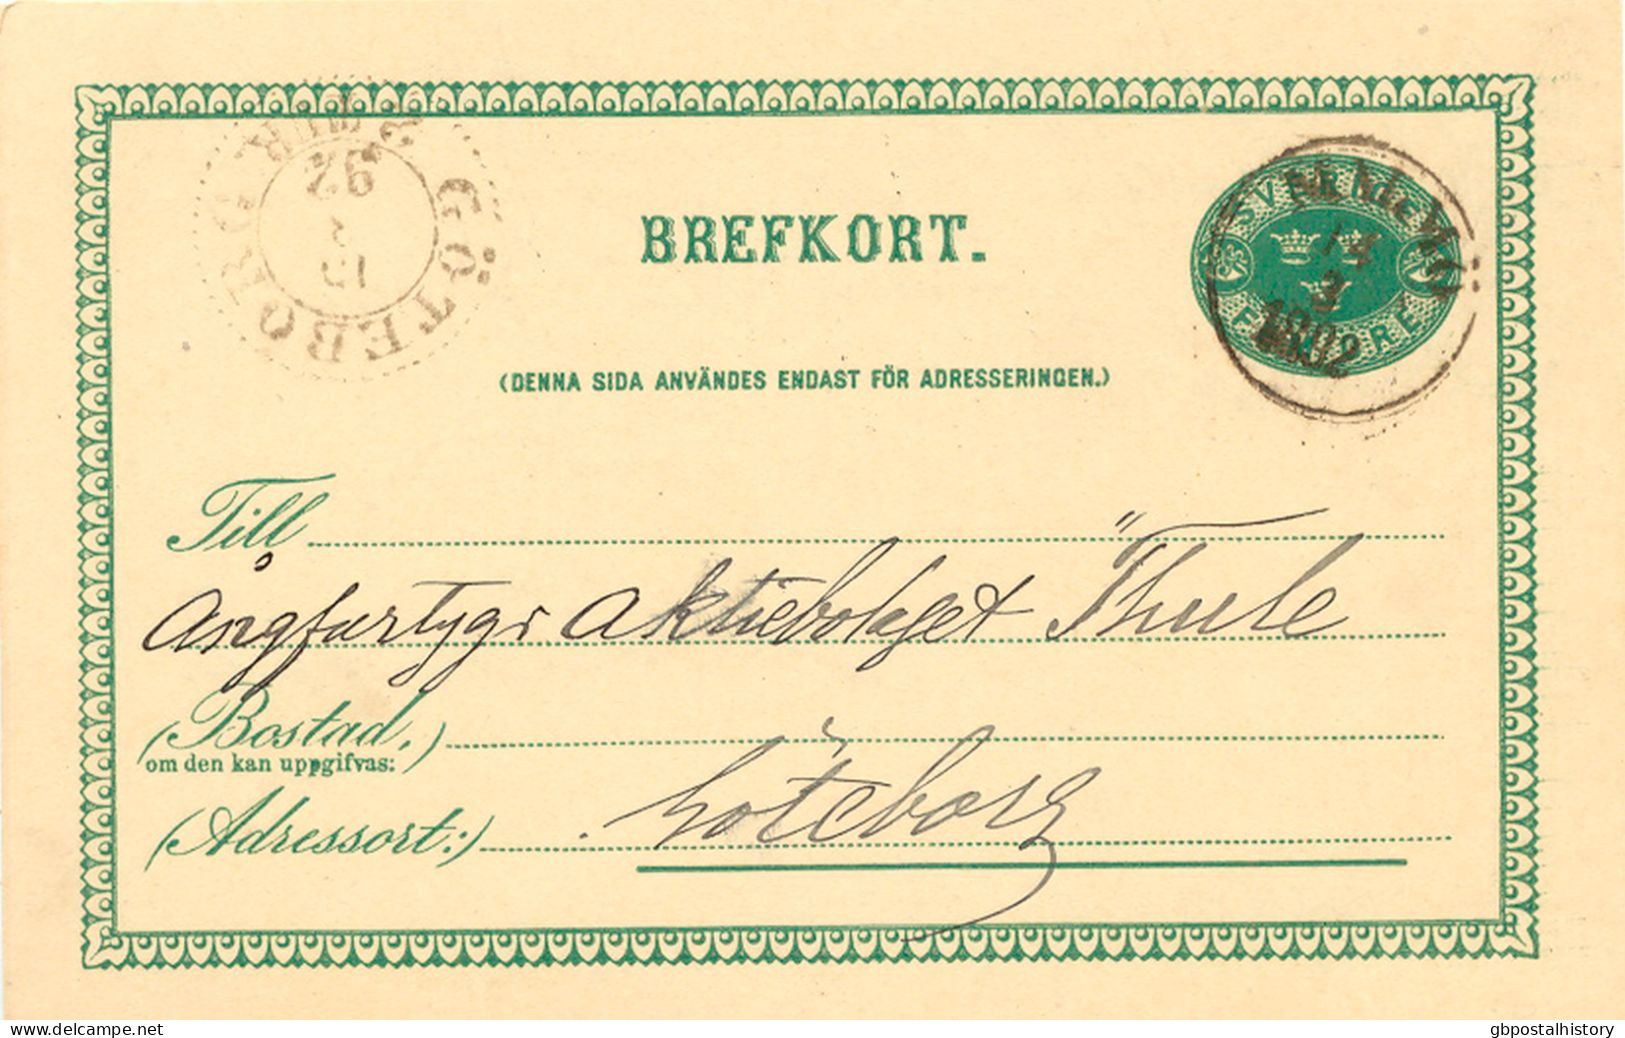 BREFKORT.
SVERIGE
FEM ÖRE
14
3
1892
GÖTEBORG
2 TUR
15
3
92
(DENNA SIDA ANVÄNDES ENDAST FÖR ADRESSERINGEN.)
Till
Ångfartygs Aktiebolaget "Thule
(Bostad,)
om den kan uppgifvas:
(Adressort:)
Göteborg
www.delcampe.net
gbpostalhistory